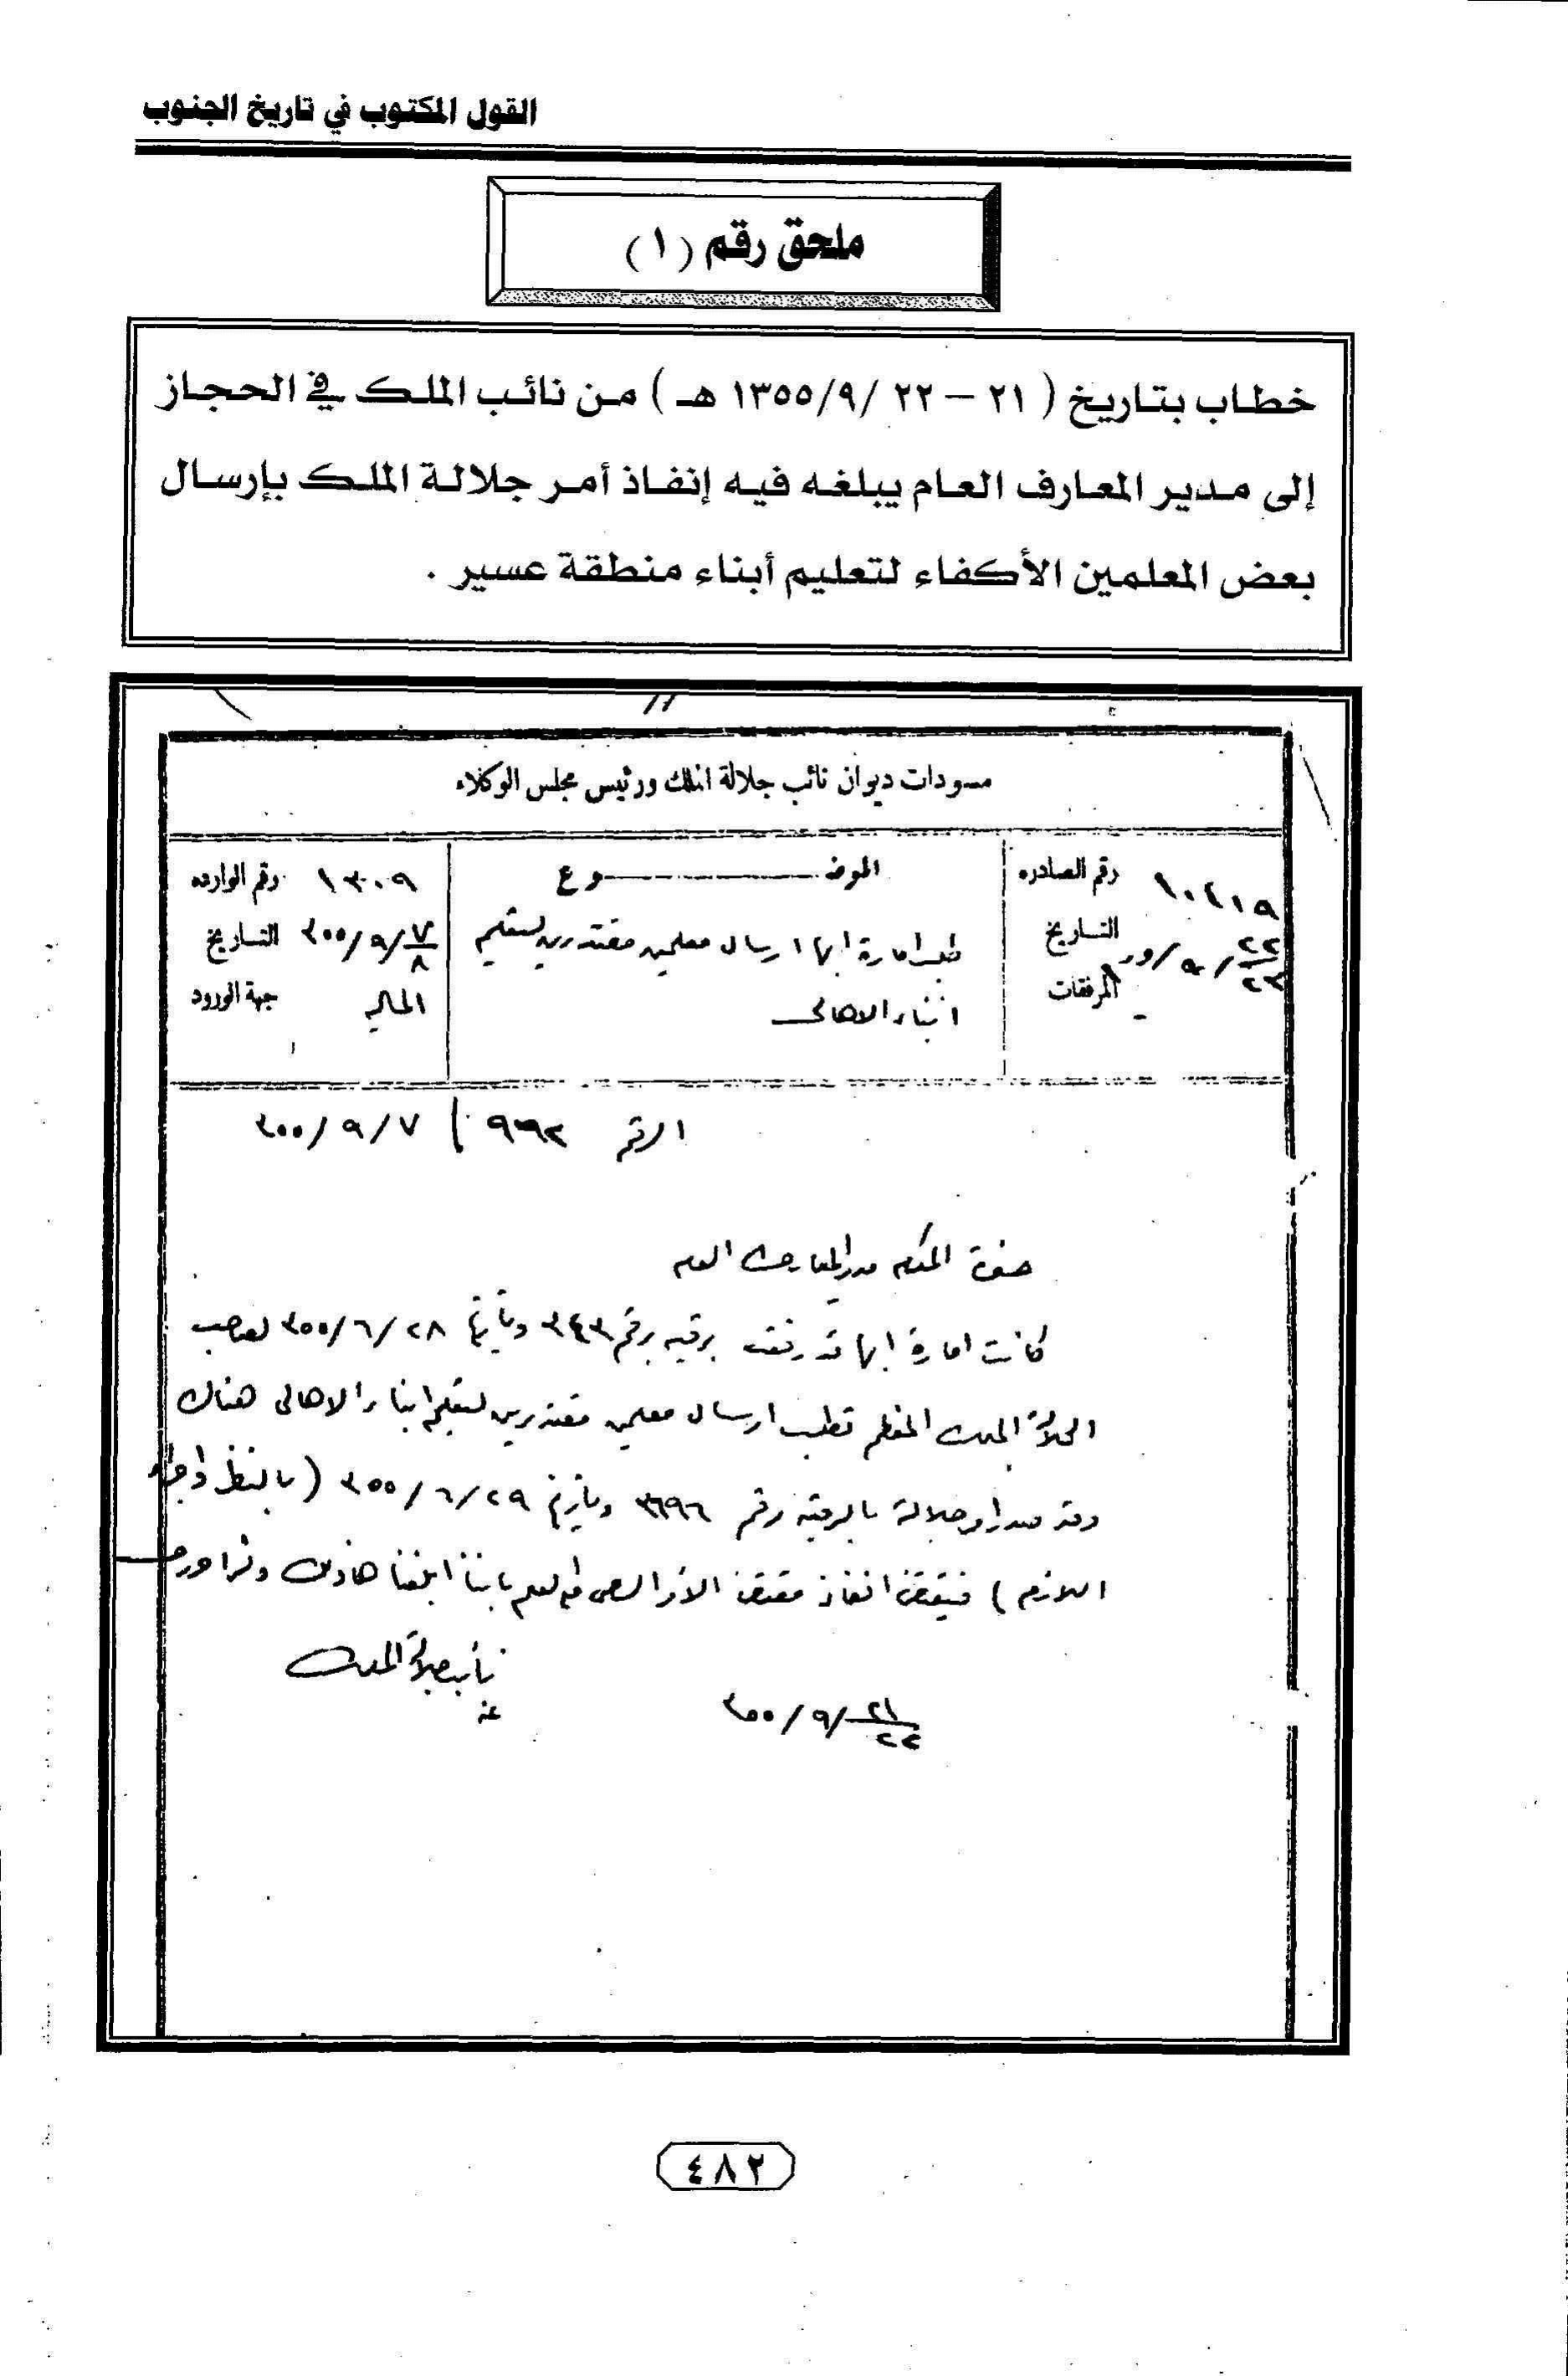 القول المكتوب في تاريخ الجنوب
ملحق رقم (١)
خطاب بتاريخ ( ٢١ – ٢٢ /١٣٥٥/٩ هـ ) من نائب الملك في الحجاز
إلى مدير المعارف العام يبلغه فيه إنفاذ أمر جلالة الملك بإرسال
بعض المعلمين الأكفاء لتعليم أبناء منطقة عسير .
مسودات ديوان نائب جلالة الملك ورئيس مجلس الوكلاء
رقم الصادره ١٠٤١٩
التاريخ ٢٢/٢٣ /٩/
المرفقات -
الموضــوع
طلب امارة ابها ارسال معلمين مقتدرين لتعليم
ابناء الاهالى
رقم الوارده ١٣٠٩
التاريخ ٧/٨ /٩/٣٥٥
جهة الورود الماليه
الرقم ٩٩٢ ٧/٩/٣٥٥
حضرة المكرم مدير المعارف العام
كانت امارة ابها قد رفعت برقيه برقم ٣٤٣ وتاريخ ٢٨/٦/٣٥٥ لصاحب
الجلالة الملك المعظم تطلب ارسال معلمين مقتدرين لتعليم ابناء الاهالى هناك
وقد صدر امر جلالته بالبرقيه رقم ٣٦٩٦ وتاريخ ٢٩/٦/٣٥٥ (بالنظر واجراء
اللازم) فيقتضى انفاذ مقتضى الامر السامى باننا ابلغنا
نائب جلالة الملك
٢١/٢٢ /٩/٣٥٥
٤٨٢